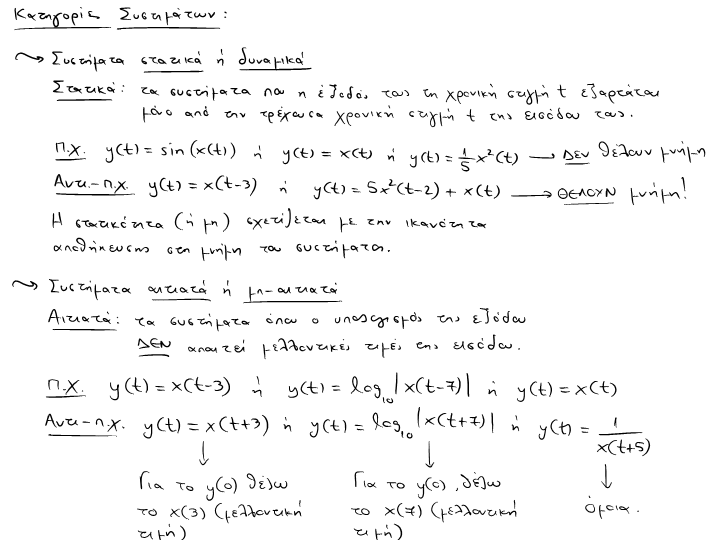 Κατηγορίες Συστημάτων:
Συστήματα στατικά ή δυναμικά
Στατικά: τα συστήματα που η έξοδός τους τη χρονική στιγμή t εξαρτάται
μόνο από την τρέχουσα χρονική στιγμή t της εισόδου τους.
Π.χ. y(t) = sin(x(t)) ή y(t) = x(t) ή y(t) = 1/5 x²(t) → ΔΕΝ θέλουν μνήμη
Αντι-π.χ. y(t) = x(t-3) ή y(t) = 5x²(t-2) + x(t) → ΘΕΛΟΥΝ μνήμη!
Η στατικότητα (ή μη) σχετίζεται με την ικανότητα
αποθήκευσης στη μνήμη του συστήματος.
Συστήματα αιτιατά ή μη-αιτιατά
Αιτιατά: τα συστήματα όπου ο υπολογισμός της εξόδου
ΔΕΝ απαιτεί μελλοντικές τιμές της εισόδου.
Π.χ. y(t) = x(t-3) ή y(t) = log₁₀|x(t-7)| ή y(t) = x(t)
Αντι-π.χ. y(t) = x(t+3) ή y(t) = log₁₀|x(t+7)| ή y(t) = 1/x(t+5)
Για το y(0) θέλω
το x(3) (μελλοντική
τιμή)
Για το y(0), θέλω
το x(7) (μελλοντική
τιμή)
όμοια.